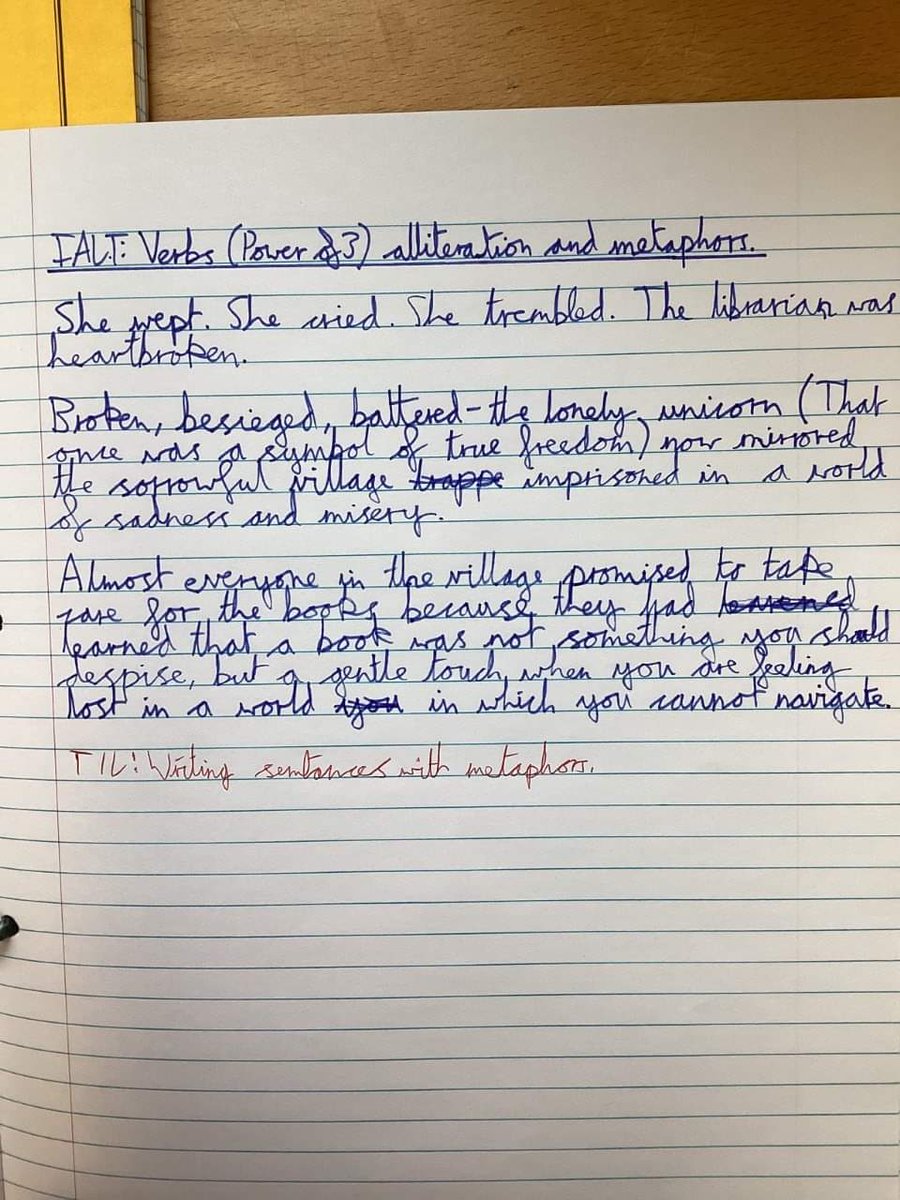 I.A.L.T: Verbs (Power of 3) alliteration and metaphors.
She wept. She cried. She trembled. The librarian was
heartbroken.
Broken, besieged, battered - the lonely unicorn (That
once was a symbol of true freedom) now mirrored
the sorrowful village trappe imprisoned in a world
of sadness and misery.
Almost everyone in the village promised to take
care for the books because they had
learned that a book was not something you should
despise, but a gentle touch when you are feeling
lost in a world you in which you cannot navigate.
TIL: Writing sentances with metaphors.